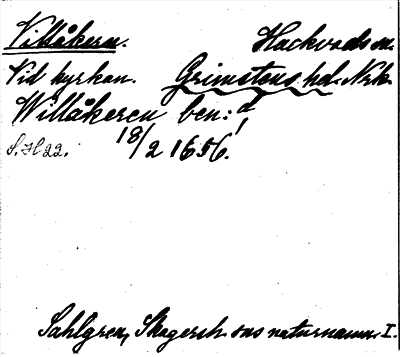 Villåkern. Hackvads sn.
Vid kyrkan. Grimstens hd. Nrk.
Willåkeren ben: d!
S. H 22. 18/2 1656.
Sahlgren, Skagersh. sns naturnamn. I.